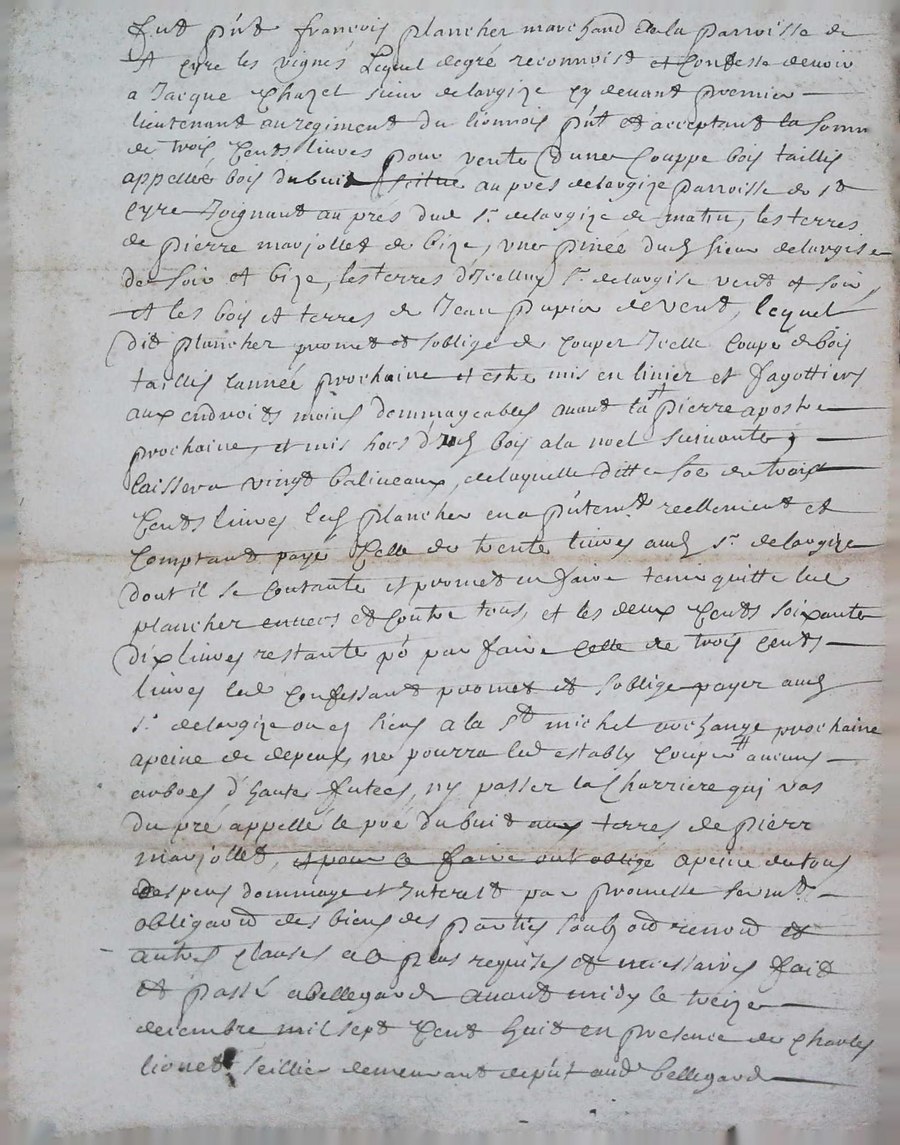 fut p'nt françois plancher marchand de la parroisse de
st cyre les vignes Lequel de gré reconnoist et confesse devoir
a Jacque Chazel sieur delargize cy devant premier
lieutenant au regiment du lionnois p'nt et acceptant la somm
de trois cents livres pour vente d'une couppe bois taillis
appellée bois du buis scitué au pres delargize parroisse de st
cyre Joignant au prés dud sr delargize de matin, les terres
de pierre marjollet de bize, une pinée dud sieur delargise
de soir et bize, les terres d'Icelluy sr delargise vent et soir
et les bois et terres de Jean pupier de vent, lequel
dit plancher promet et soblige de couper Icelle coupe de bois
taillis lannée prochaine et estre mis en linier et fagottiers
aux endroits moins dommageables avant la st pierre apostre
prochaine, et mis hors d' bois a la noel suivante,
laissera vingt balineaux, de laquelle ditte soe de trois
cents livres led plancher en a p'ntemt reellement et
comptant payé celle de trente livres aud sr delargize
dont il se contante et promet en faire tenir quitte led
plancher envers et contre tous, et les deux cents soixante
dix livres restante po par faire celle de trois cents
livres led confessant promet et soblige payer aud
sr delargize ou es siens a la st michel archange prochaine
apeine de depens, ne pourra led estably couper aucuns
arbres d'haute futees, ny passer la charriere qui vas
du pré appellé le pré du buit aux terres de pierr
marjollet, et pour ce faire ont obligé apeine de tous
despens dommage et Interest par promesse sermt
obligaon des biens des parties renon et
autres clauses a ce plus requises et necessaires fait
et passé a Bellegarde avant midy le treize
decembre mil sept cent huit en presence de charles
lionet seillier demeurant dep'nt aud bellegarde